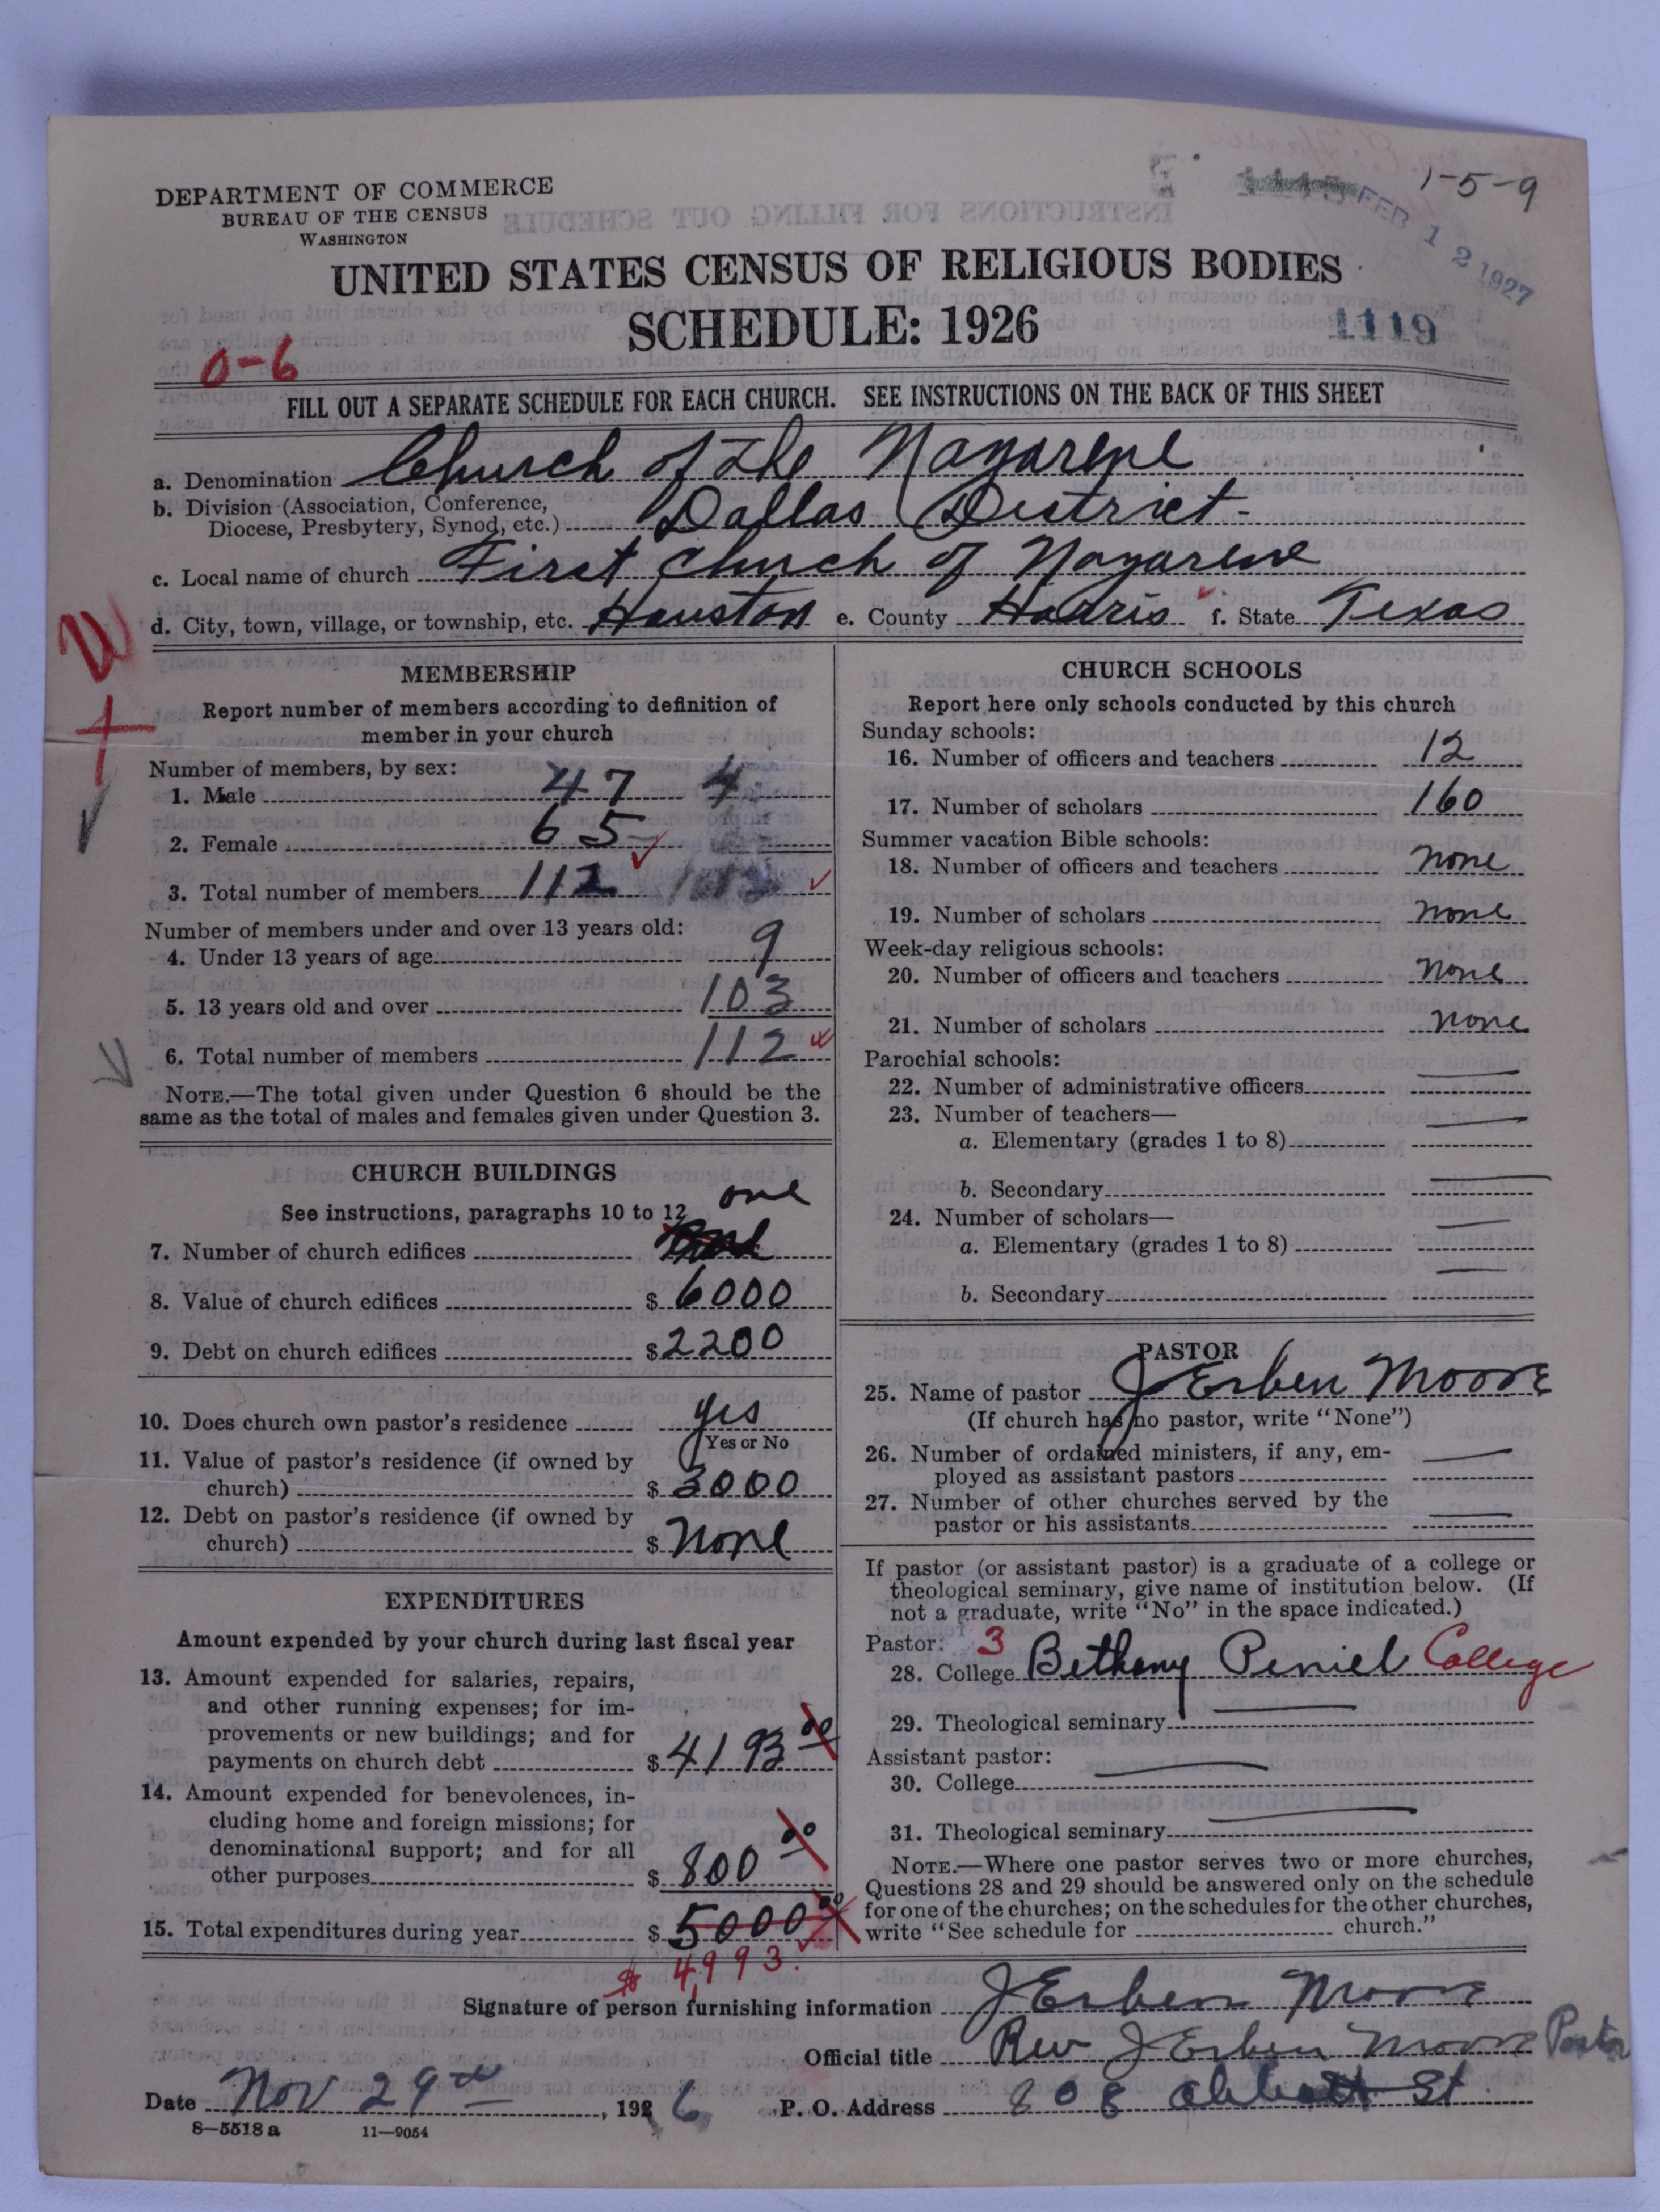 DEPARTMENT OF COMMERCE
BUREAU OF THE CENSUS
WASHINGTON
1-5-9
FEB 12 1927
UNITED STATES CENSUS OF RELIGIOUS BODIES
SCHEDULE: 1926
1119
0-6
FILL OUT A SEPARATE SCHEDULE FOR EACH CHURCH. SEE INSTRUCTIONS ON THE BACK OF THIS SHEET
a. Denomination Church of the Nazarene
b. Division (Association, Conference,
Diocese, Presbytery, Synod, etc.) Dallas District
c. Local name of church First Church of Nazarene
d. City, town, village, or township, etc. Houston e. County Harris f. State Texas
MEMBERSHIP
Report number of members according to definition of
member in your church
Number of members, by sex:
1. Male 47 4
2. Female 65
3. Total number of members 112
Number of members under and over 13 years old:
4. Under 13 years of age 9
5. 13 years old and over 103
6. Total number of members 112
NOTE.—The total given under Question 6 should be the
same as the total of males and females given under Question 3.
CHURCH BUILDINGS
See instructions, paragraphs 10 to 12
one
7. Number of church edifices
8. Value of church edifices $ 6000
9. Debt on church edifices $ 2200
10. Does church own pastor's residence yes
Yes or No
11. Value of pastor's residence (if owned by
church) $ 3000
12. Debt on pastor's residence (if owned by
church) $ None
EXPENDITURES
Amount expended by your church during last fiscal year
13. Amount expended for salaries, repairs,
and other running expenses; for im-
provements or new buildings; and for
payments on church debt $ 4193 00
14. Amount expended for benevolences, in-
cluding home and foreign missions; for
denominational support; and for all
other purposes $ 800 00
15. Total expenditures during year $ 5000 00
$ 4993.
CHURCH SCHOOLS
Report here only schools conducted by this church
Sunday schools:
16. Number of officers and teachers 12
17. Number of scholars 160
Summer vacation Bible schools:
18. Number of officers and teachers none
19. Number of scholars none
Week-day religious schools:
20. Number of officers and teachers none
21. Number of scholars none
Parochial schools:
22. Number of administrative officers
23. Number of teachers—
a. Elementary (grades 1 to 8)
b. Secondary
24. Number of scholars—
a. Elementary (grades 1 to 8)
b. Secondary
PASTOR
25. Name of pastor J Erben Moore
(If church has no pastor, write "None")
26. Number of ordained ministers, if any, em-
ployed as assistant pastors
27. Number of other churches served by the
pastor or his assistants
If pastor (or assistant pastor) is a graduate of a college or
theological seminary, give name of institution below. (If
not a graduate, write "No" in the space indicated.)
Pastor: 3
28. College Bethany Peniel College
29. Theological seminary
Assistant pastor:
30. College
31. Theological seminary
NOTE.—Where one pastor serves two or more churches,
Questions 28 and 29 should be answered only on the schedule
for one of the churches; on the schedules for the other churches,
write "See schedule for church."
Signature of person furnishing information J Erben Moore
Official title Rev J Erben Moore Pastor
Date Nov 29th, 1926 P. O. Address 808 Abbott St
8—5518 a 11—9054